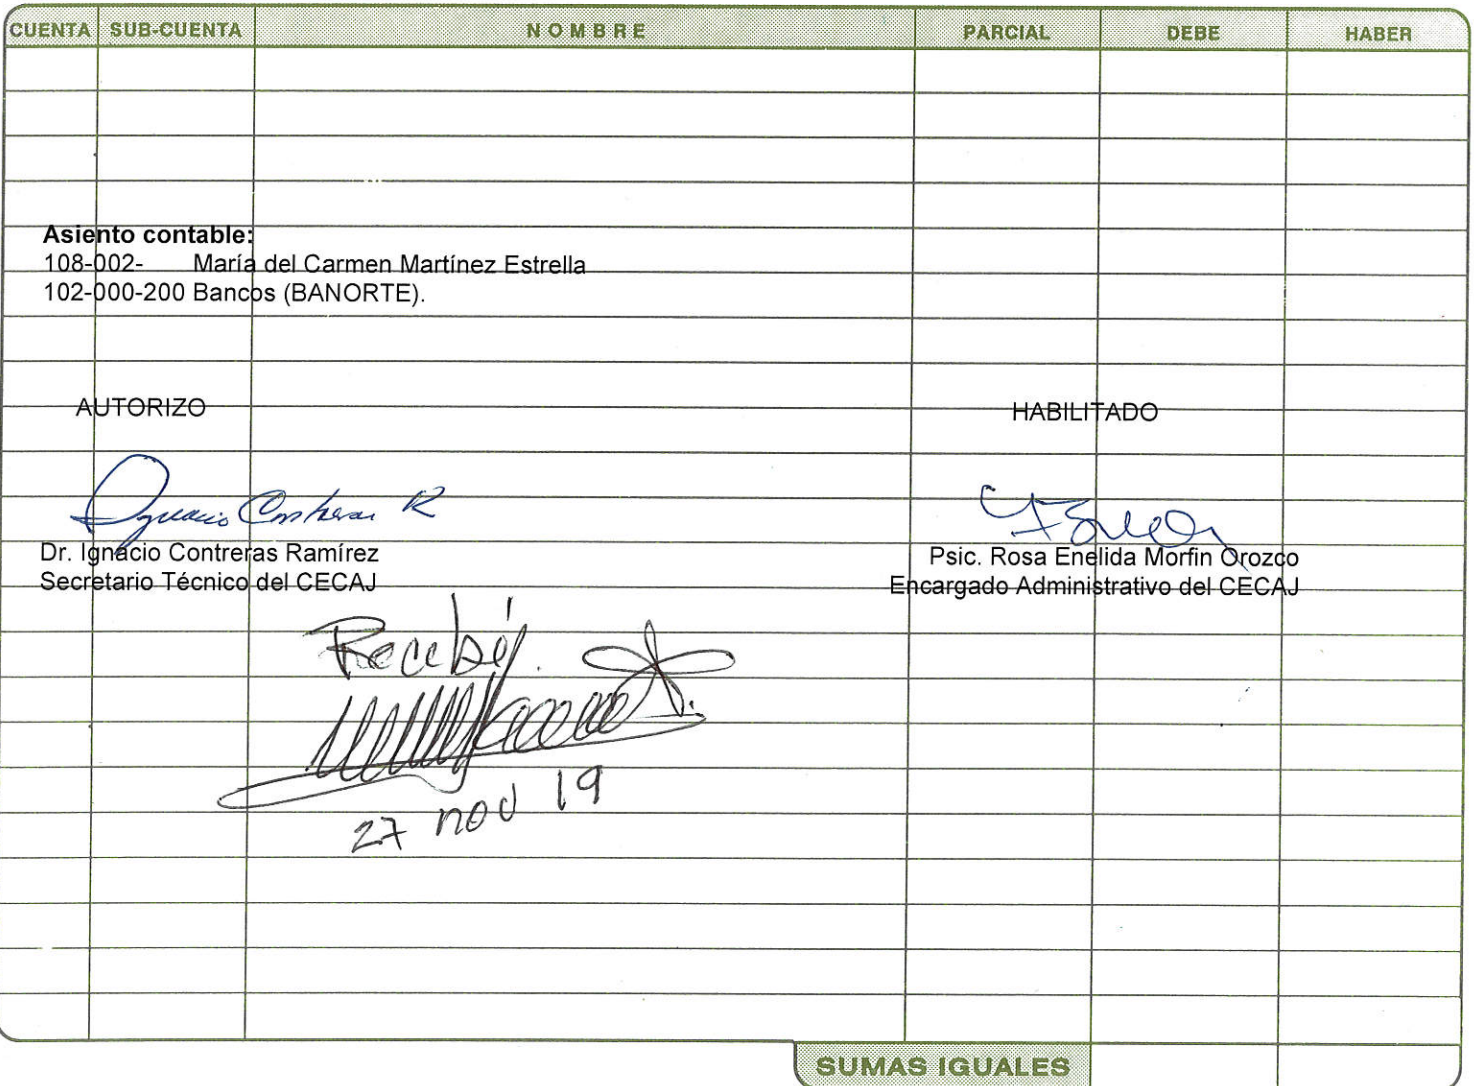 CUENTA SUB-CUENTA NOMBRE PARCIAL DEBE HABER
Asiento contable:
108-002- María del Carmen Martínez Estrella
102-000-200 Bancos (BANORTE).
AUTORIZO HABILITADO
Ignacio Contreras R
Dr. Ignacio Contreras Ramírez
Secretario Técnico del CECAJ
Psic. Rosa Enelida Morfin Orozco
Encargado Administrativo del CECAJ
Recibí.
27 nov 19
SUMAS IGUALES